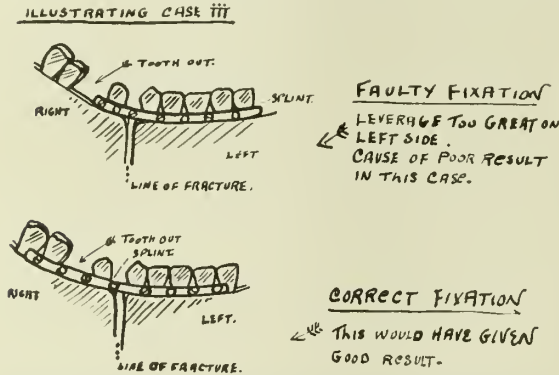 ILLUSTRATING CASE III
TOOTH OUT.
RIGHT
SPLINT.
LEFT
LINE OF FRACTURE.
FAULTY FIXATION
LEVERAGE TOO GREAT ON
LEFT SIDE.
CAUSE OF POOR RESULT
IN THIS CASE.
TOOTH OUT
SPLINT
RIGHT
LEFT.
LINE OF FRACTURE.
CORRECT FIXATION
THIS WOULD HAVE GIVEN
GOOD RESULT.